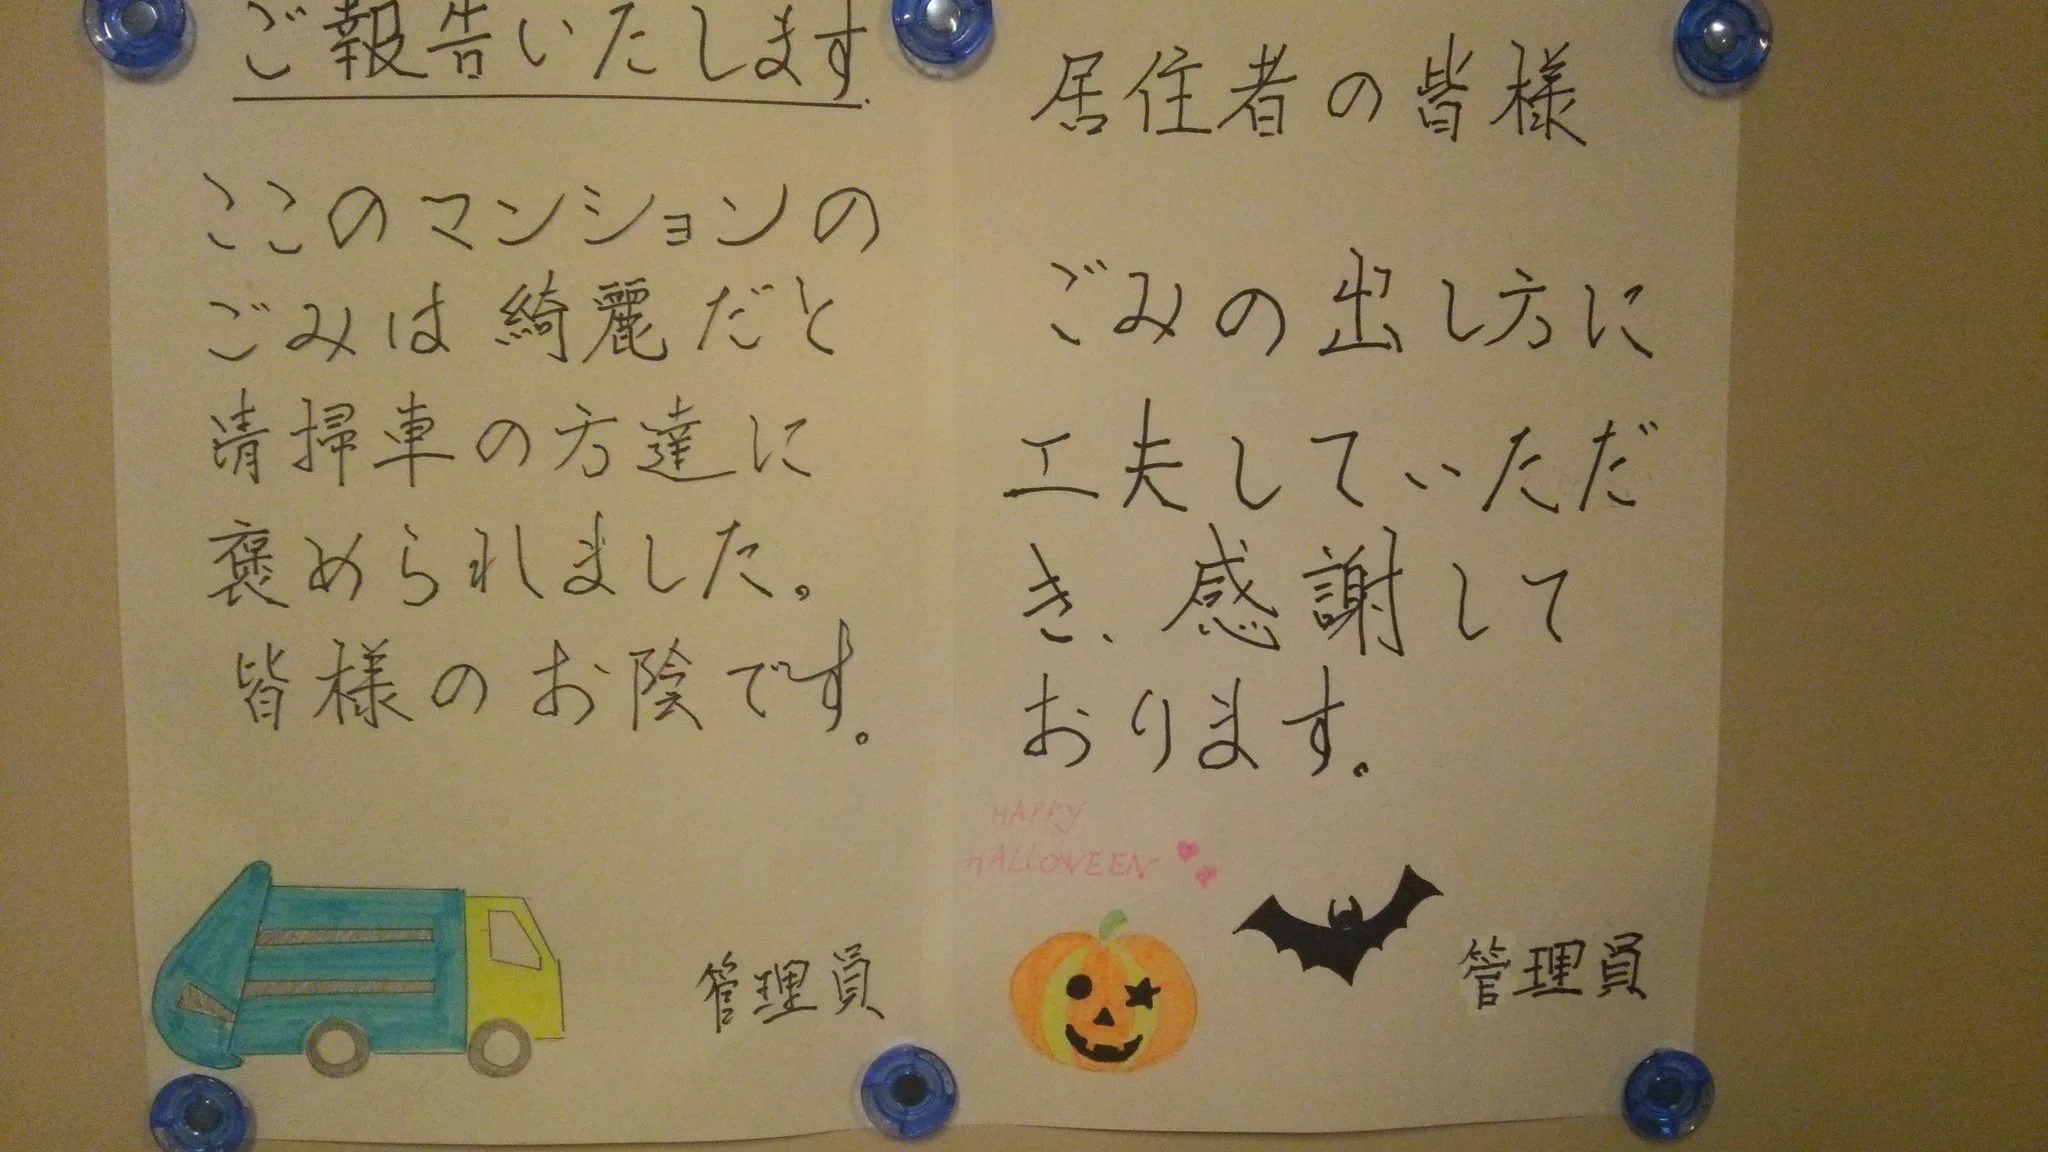 ご報告いたします.
ここのマンションの
ごみは綺麗だと
清掃車の方達に
褒められました。
皆様のお陰です。
管理員
居住者の皆様
ごみの出し方に
工夫していただ
き、感謝して
おります。
HAPPY
HALLOWEEN
管理員